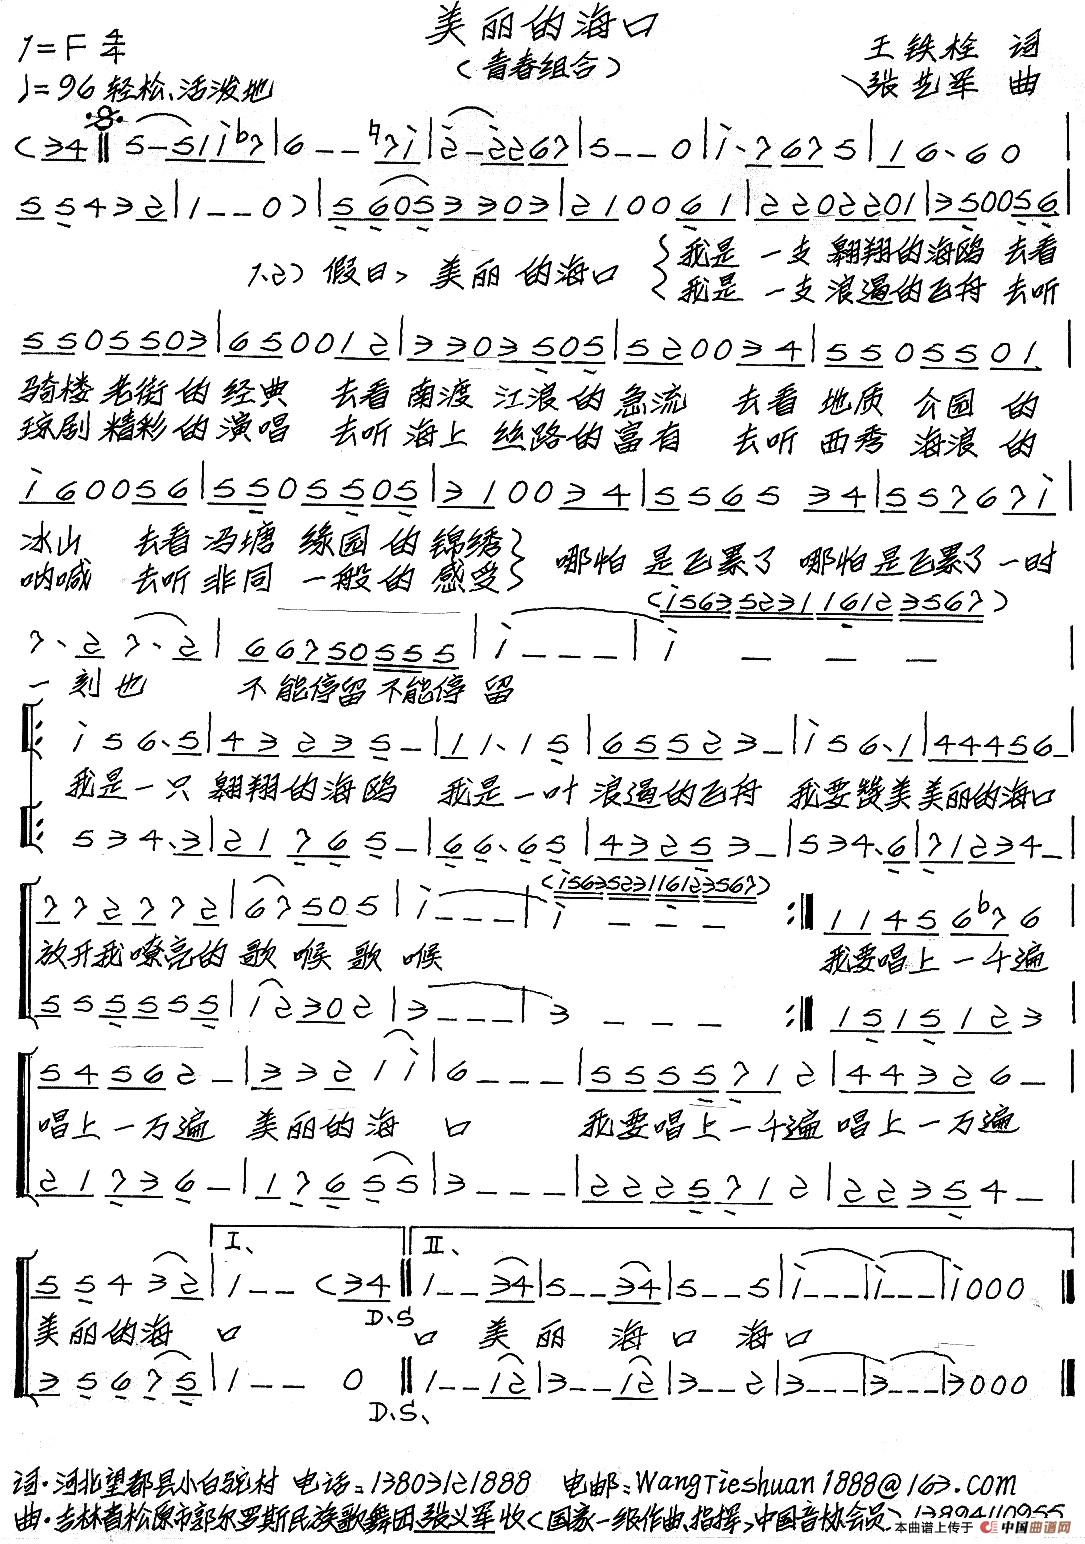 美丽的海口
1=F 4/4
(青春组合)
王铁栓 词
♩=96 轻松、活泼地
张艺军 曲
(34‖5-51i♭7|6--♮7i|2-2267|5--0|i、7675|16、60
55432|1--0)|56053303|210061|2202201|350056
1.2) 假日, 美丽 的海口 {我是 一支 翱翔的海鸥 去看
我是 一支 浪遏的飞舟 去听
5505503|650012|3303505|520034|5505501
骑楼 老街 的 经典 去看 南渡 江浪 的 急流 去看 地质 公园 的
琼剧 精彩 的 演唱 去听 海上 丝路 的 富有 去听 西秀 海浪 的
i60056|5505505|310034|5565 34|55767i
冰山 去看 冯塘 绿园 的 锦绣} 哪怕 是飞累了 哪怕是飞累了 一时
呐喊 去听 非同 一般 的 感受
(i56352311612 3567)
7、2 7、2|66750555|i---|i - - -
一 刻 也 不 能停留 不能停 留
i56、5|43235-|11、15|655 23-|i56、1|444 56-
我是一只 翱翔的海鸥 我是一叶 浪遏的飞舟 我要赞美 美丽的海口
534、3|217 65-|66、65|43253-|534、6|71234-
(i563523116123567)
772772|67505|i---|i - - - :‖11456♭76
放开我嘹亮的 歌 喉 歌 喉 我要唱上一千遍
555555|i2302|3---|3 - - - :‖1515123
545 62-|3321i|6---|5555712|443 26-
唱上一万遍 美丽的海 口 我要唱上一千遍 唱上一万遍
217 36-|17655|3---|2225712|223 54-
I、 II、
55432|1--(34‖1--34|5--34|5--5|i---|i---|i000‖
D.S
美丽的海 口 口 美 丽 海 口 海 口
35675|1--0‖1--12|3--12|3--2|3---|3---|3000‖
D.S、
词·河北望都县小白驼村 电话:13803121888 电邮:WangTieshuan1888@163.com
曲·吉林省松原市郭尔罗斯民族歌舞团张义军收(国家一级作曲、指挥,中国音协会员)13894110955
本曲谱上传于 中国曲谱网